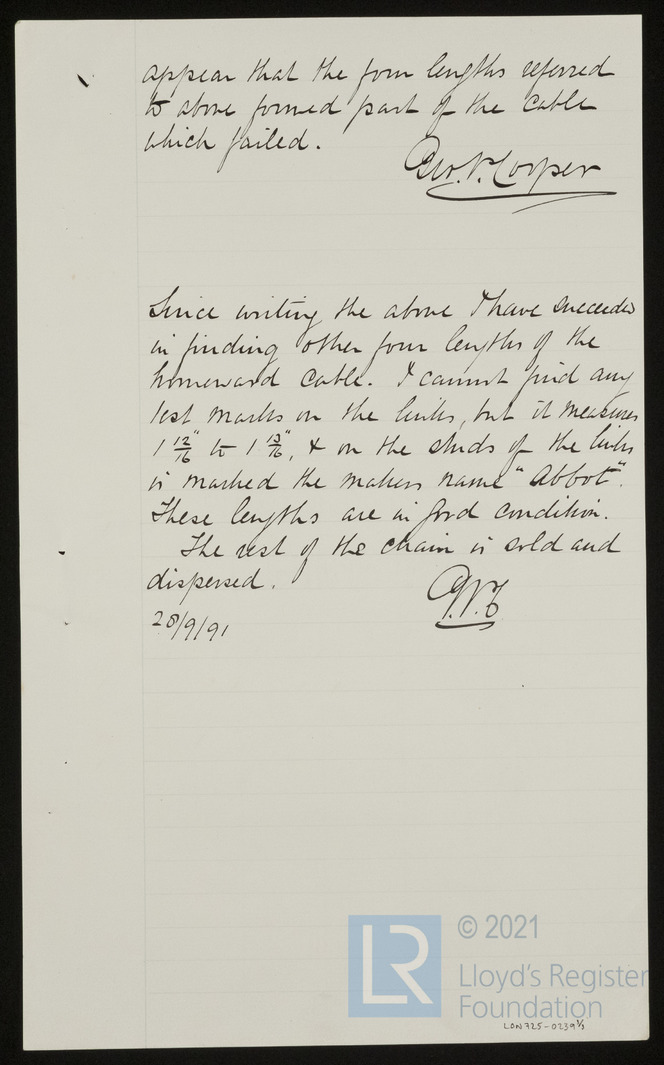 appear that the four lengths referred
to above formed part of the cable
which failed.
Geo. V. Cooper
Since writing the above I have succeeded
in finding other four lengths of the
homeward cable. I cannot find any
test marks on the links, but it measures
1 12/16" to 1 13/16", & on the studs of the links
is marked the makers name "Abbot".
These lengths are in good condition.
The rest of the chain is sold and
dispersed.
28/9/91
© 2021
LR
Lloyd's Register
Foundation
LON725-0239 1/2